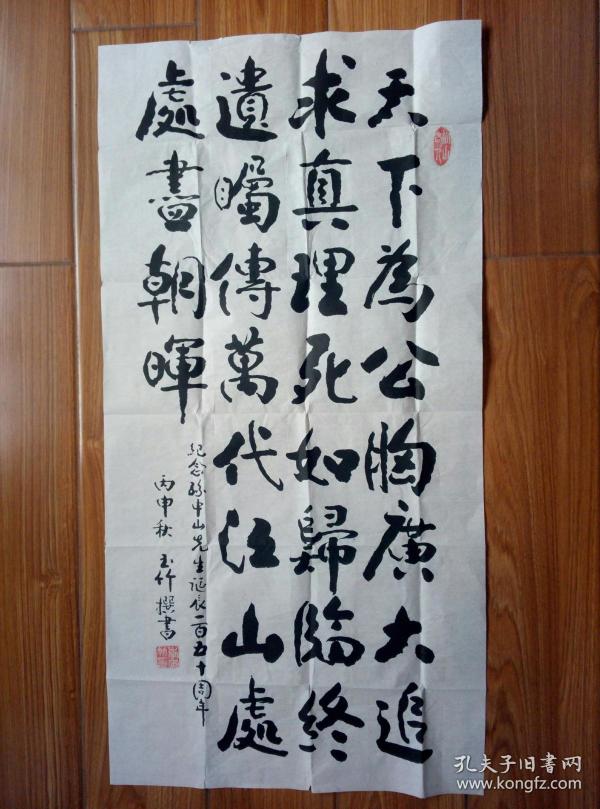 天下為公胸廣大追
求真理死如歸臨終
遺囑傳萬代江山處
處盡朝暉
紀念孫中山先生誕辰一百五十周年
丙申秋 玉竹撰書
孔夫子旧书网
www.kongfz.com